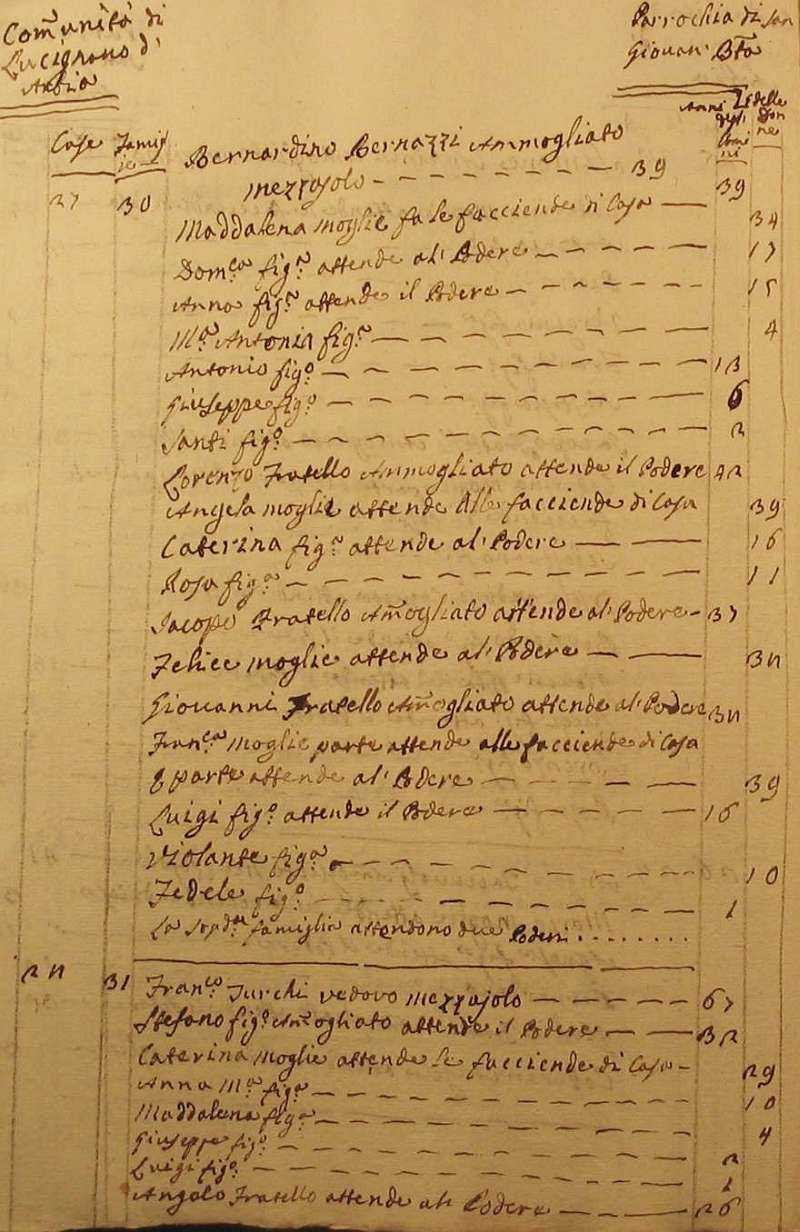 Com̃unità di
Lucignano d'
Arbia
Parrochia di San
Giovan: Bta
Case Famiglie
Anni degli Uomini
Id delle Donne
27 30 Bernardino Bernazzi Ammogliato
mezzajolo 39 39
Maddalena moglie fa le facciende di Casa 34
Dom.ca fig.a attende al' Podere 17
Anna fig.a attende il Podere 15
M.a Antonia fig.a 4
Antonio fig.o 13
Giuseppe fig.o 6
Santi fig.o 2
Lorenzo Fratello Ammogliato attende il Podere 42
Angela moglie attende alle facciende di Casa 39
Caterina fig.a attende al' Podere 16
Rosa fig.a 11
Jacopo Fratello Am̃ogliato attende al' Podere 37
Felice moglie attende al' Podere 34
Giovanni Fratello Am̃ogliato attende al' Podere 34
Fran.ca moglie parte attende alle facciende di Casa
e parte attende al' Podere 39
Luigi fig.o attende il Podere 16
Violante fig.a 10
Fedele fig.o 1
La Sopd.a famiglia attendono due Poderi
31 Fran.co Turchi vedovo mezzajolo 67
Stefano fig.o Am̃ogliato attende il Podere 32
Caterina moglie attende le facciende di Casa 29
Anna M.a fig.a 10
Maddalena fig.a 4
Giuseppe fig.o 2
Luigi fig.o 1
Angolo Fratello attende al: Podere 26